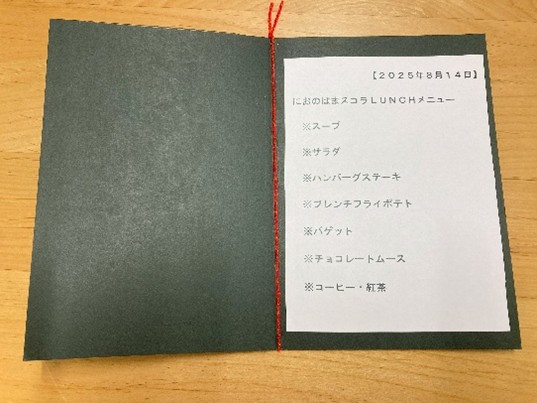 【２０２５年８月１４日】
におのはまスコラＬＵＮＣＨメニュー
※スープ
※サラダ
※ハンバーグステーキ
※フレンチフライポテト
※バゲット
※チョコレートムース
※コーヒー・紅茶